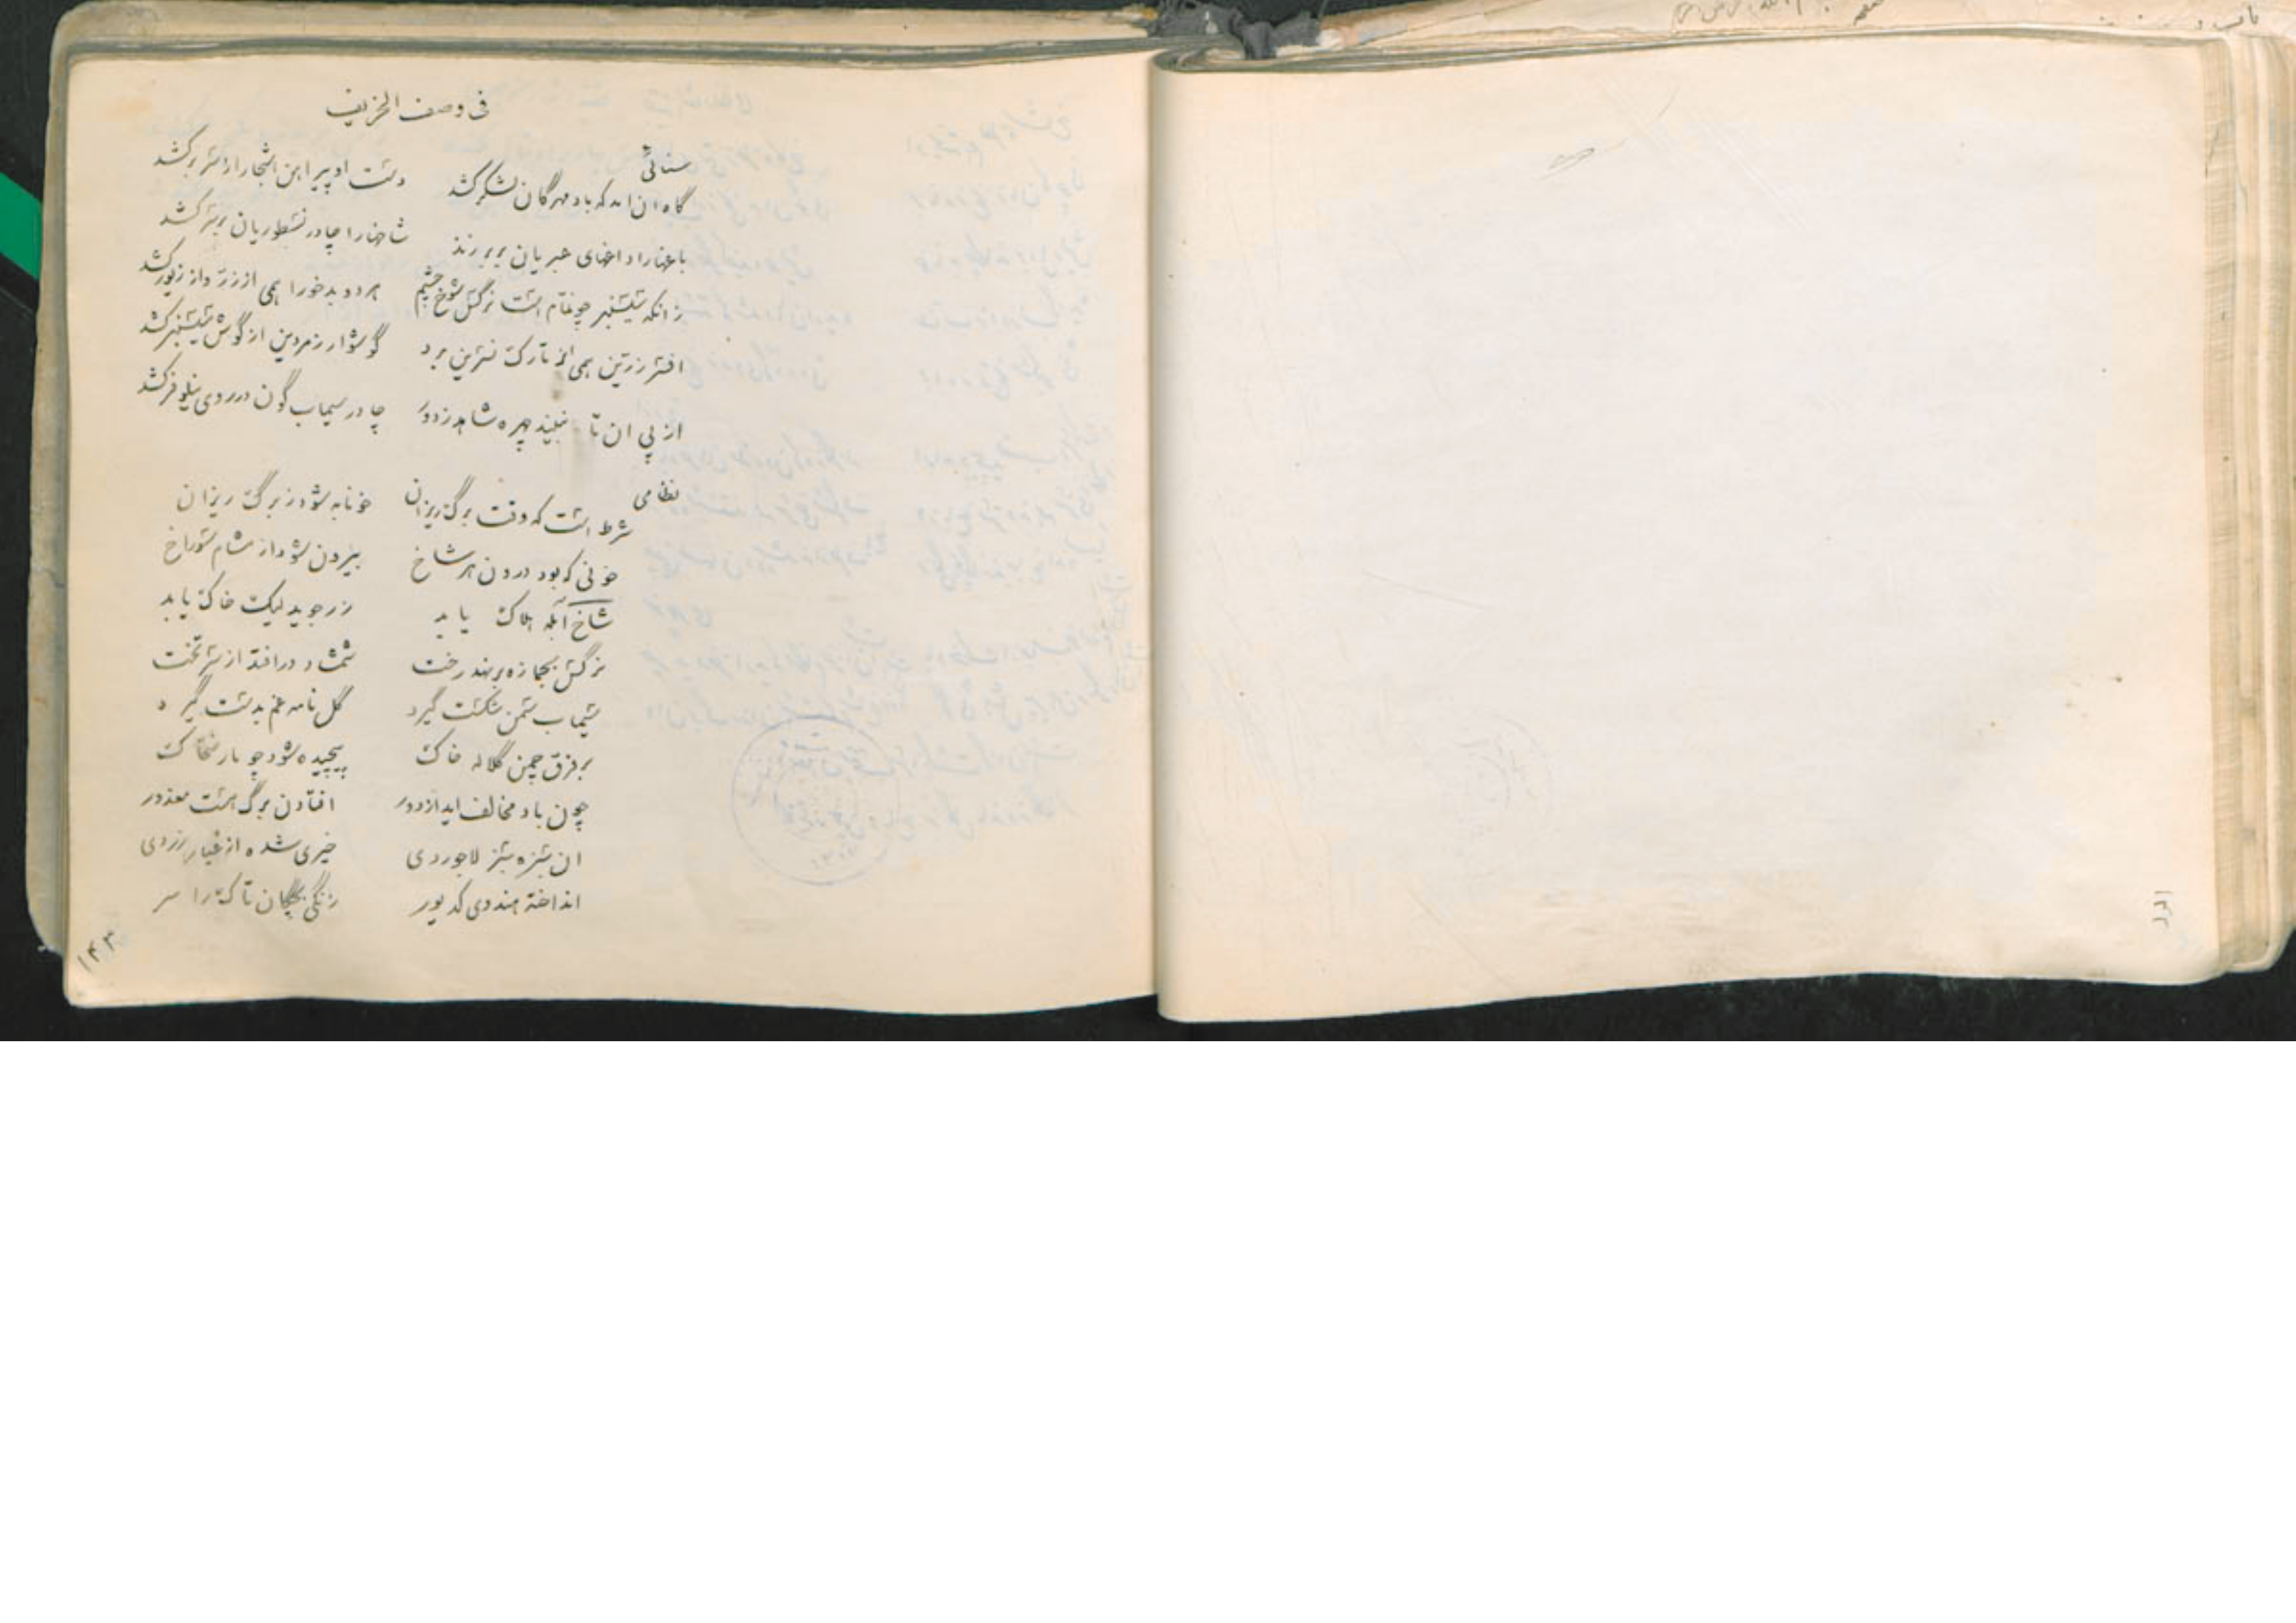 فی وصف الخریف
سنائی
گاه ان امد که باد مهرگان لشکر کشد دست او پیراهن اشجار از سر برکشد
باغهارا داغهای عبریان بر بر زند شاخهارا چادر نسطوریان بر سر کشد
زانکه سیسنبر چو نمام است نرگس شوخ چشم هر دو بدخورا همی از زر و از زیور کشد
افسر زرین همی از تارک نسرین برد گوشوار زمردین از گوش سیسنبر کشد
از پی ان تا نبیند چهره شاهد زدور چادر سیماب گون در روی نیلوفر کشد
نظامی
شرط است که وقت برگ ریزان خونابه شود ز برگ ریزان
خونی که بود درون هر شاخ بیرون شود از مسام سوراخ
شاخ آبله هلاک یابد زر جوید لیک خاک یابد
نرگس بجمازه بر نهد رخت شمشاد در افتد از سر تخت
سیماب سمن شکست گیرد گل نامه غم بدست گیرد
بر فرق چمن کلاله خاک پیچیده شود چو مار ضحاک
چون باد مخالف اید از دور افتادن برگ هست معذور
ان سبزه سبز لاجوردی خیری شده از غبار زردی
انداخته هندوی کدیور زنگی بچگان تاک را سر
۱۴۳